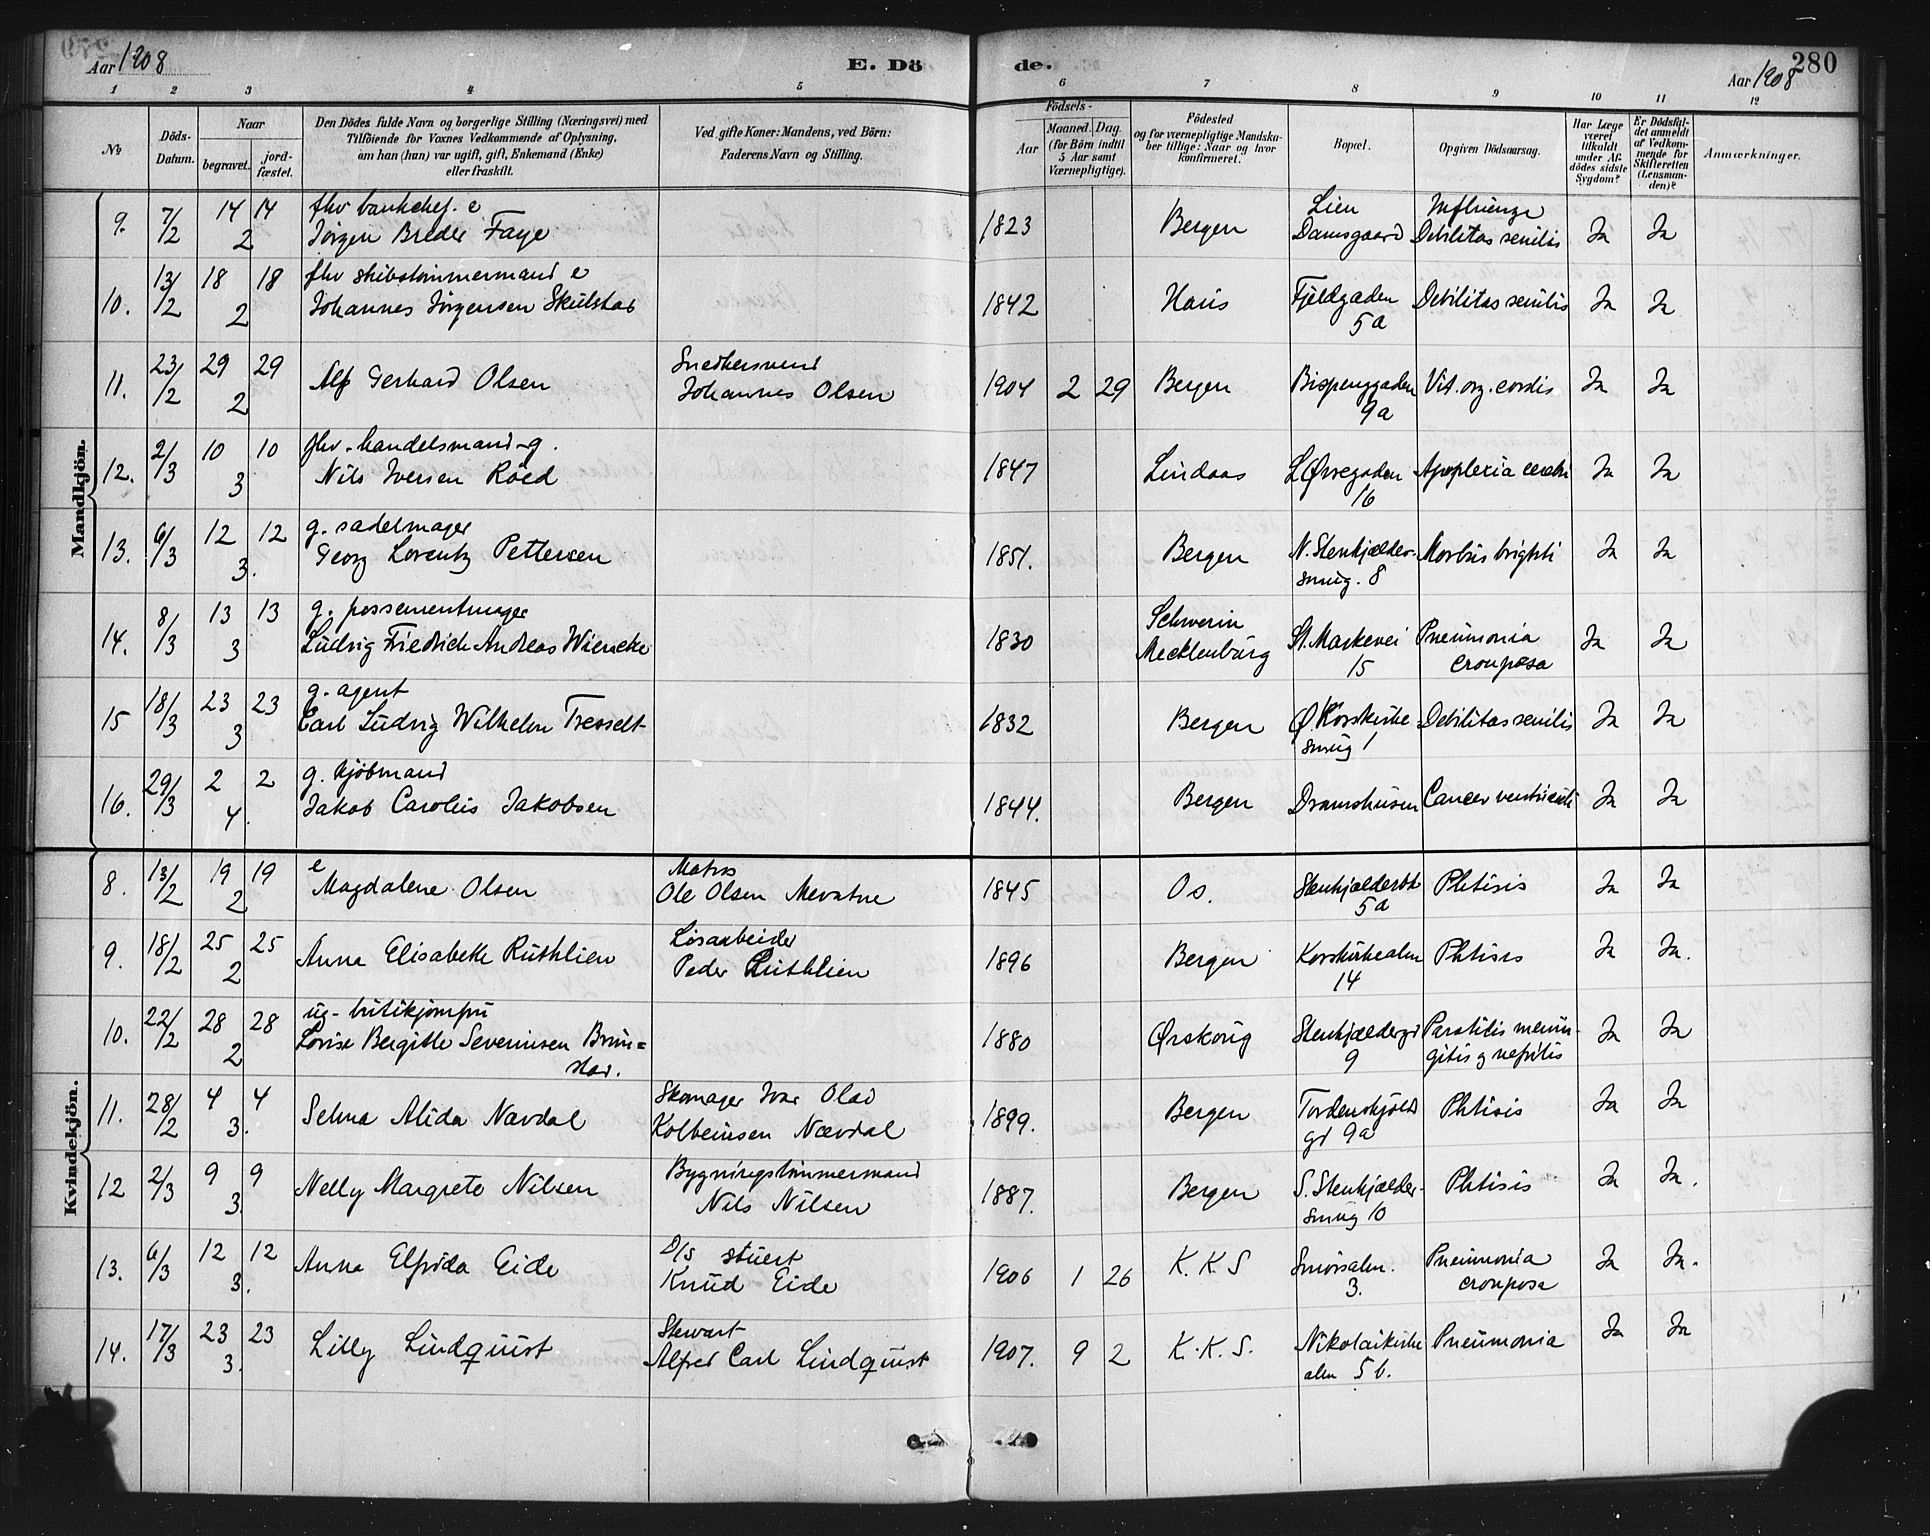 Aar 1908
E. Dö
de.
280
Aar 1908
1 2 3 4 5 6 7 8 9 10 11 12
No
Döds-
Datum.
Naar
begravet.
jord-
fæstet.
Den Dödes fulde Navn og borgerlige Stilling (Næringsvei) med
Tilföiende for Voxnes Vedkommende af Oplysning.
om han (hun) var ugift, gift, Enkemand (Enke)
eller fraskilt.
Ved gifte Koner: Mandens, ved Börn:
Faderens Navn og Stilling.
Födsels-
Aar
Maaned. Dag.
(for Börn indtil
5 Aar samt
Værnepligtige).
Födested
og for værnepligtige Mandska-
ber tillige: Naar og hvor
konfirmeret.
Bopæl.
Opgiven Dödsaarsag.
Har Læge
været
tilkaldt
under Af-
dödes sidste
Sygdom?
Er Dödsfal-
det anmeldt
af Vedkom-
mende for
Skifteretten
(Lensman-
den)?
Anmærkninger.
Mandkjön.
9. 7/2 14/2 14 fhv bankchef. e
Jørgen Breder Faye 1823 Bergen Lien
Damsgaard Influenza
Debilitas senilis Ja Ja
10. 13/2 18/2 18 fhv skibstømmermand e
Johannes Jørgensen Skulstad 1842 Haus Fjeldgaden
5a Debilitas senilis Ja Ja
11. 23/2 29/2 29 Alf Gerhard Olsen Snedkersvend
Johannes Olsen 1904 2 29 Bergen Bispenggaden
9a Vit. org. cordis Ja Ja
12. 2/3 10/3 10 fhv. handelsmand g.
Nils Iversen Röed 1847 Lindaas L Øvregaden
16 Apoplexia cerebri Ja Ja
13. 6/3 12/3. 12 g. sadelmager
Georg Lorentz Pettersen 1851. Bergen N. Stenkjelder-
smug. 8 Morbus brighti Ja Ja
14. 8/3 13/3 13 g. possementmager
Ludvig Friedrich Andreas Wiencke 1830 Schwerin
Mecklenburg St. Markevei
15 Pneumonia
crouposa Ja Ja
15 18/3 23/3 23 g. agent
Carl Ludvig Wilhelm Tresselt 1832 Bergen Ø. Korskirke-
smug 1 Debilitas senilis Ja Ja
16. 29/3 2/4. 2 g. kjøbmand
Jakob Carolus Jakobsen 1844. Bergen Dramshusen Cancer ventriculi Ja Ja
Kvindekjön.
8. 13/2 19/2 19 e
Magdalene Olsen Matros
Ole Olsen Mevatne 1845 Os. Stenkjælderbk
5a Phtisis Ja Ja
9. 18/2 25/2 25 Anna Elisabeth Ruthlien Løsarbeider
Peder Ruthlien 1896 Bergen Korskirkealm
14 Phtisis Ja Ja.
10. 22/2 28/2 28 ug. butikjomfru
Lovise Bergitte Severinsen Brun=
stad. 1880 Ørskoug Stenkjældergd
9 Parotitis menin-
gitis g nefritis Ja Ja
11. 28/2 4/3. 4 Selma Alida Navdal Skomager Ivar Olai
Kolbeinsen Nævdal 1899. Bergen Tordenskjold
gd 9a Phtisis Ja Ja
12 2/3 9/3 9 Nelly Margrete Nilsen Bygningstømmermand
Nils Nilsen 1887. Bergen S. Stenkjælder-
smug 10 Phtisis Ja Ja.
13. 6/3 12/3. 12 Anna Elfrida Eide D/s stuert
Knud Eide 1906 1 26 K. K. S Smørsalm.
3. Pneumonia
crouposa Ja Ja.
14. 17/3 23/3. 23 Lilly Lindquist Stewart
Alfred Carl Lindquist 1907. 9 2 K. K. S. Nikolaikirke
alm 5 b. Pneumonia Ja Ja